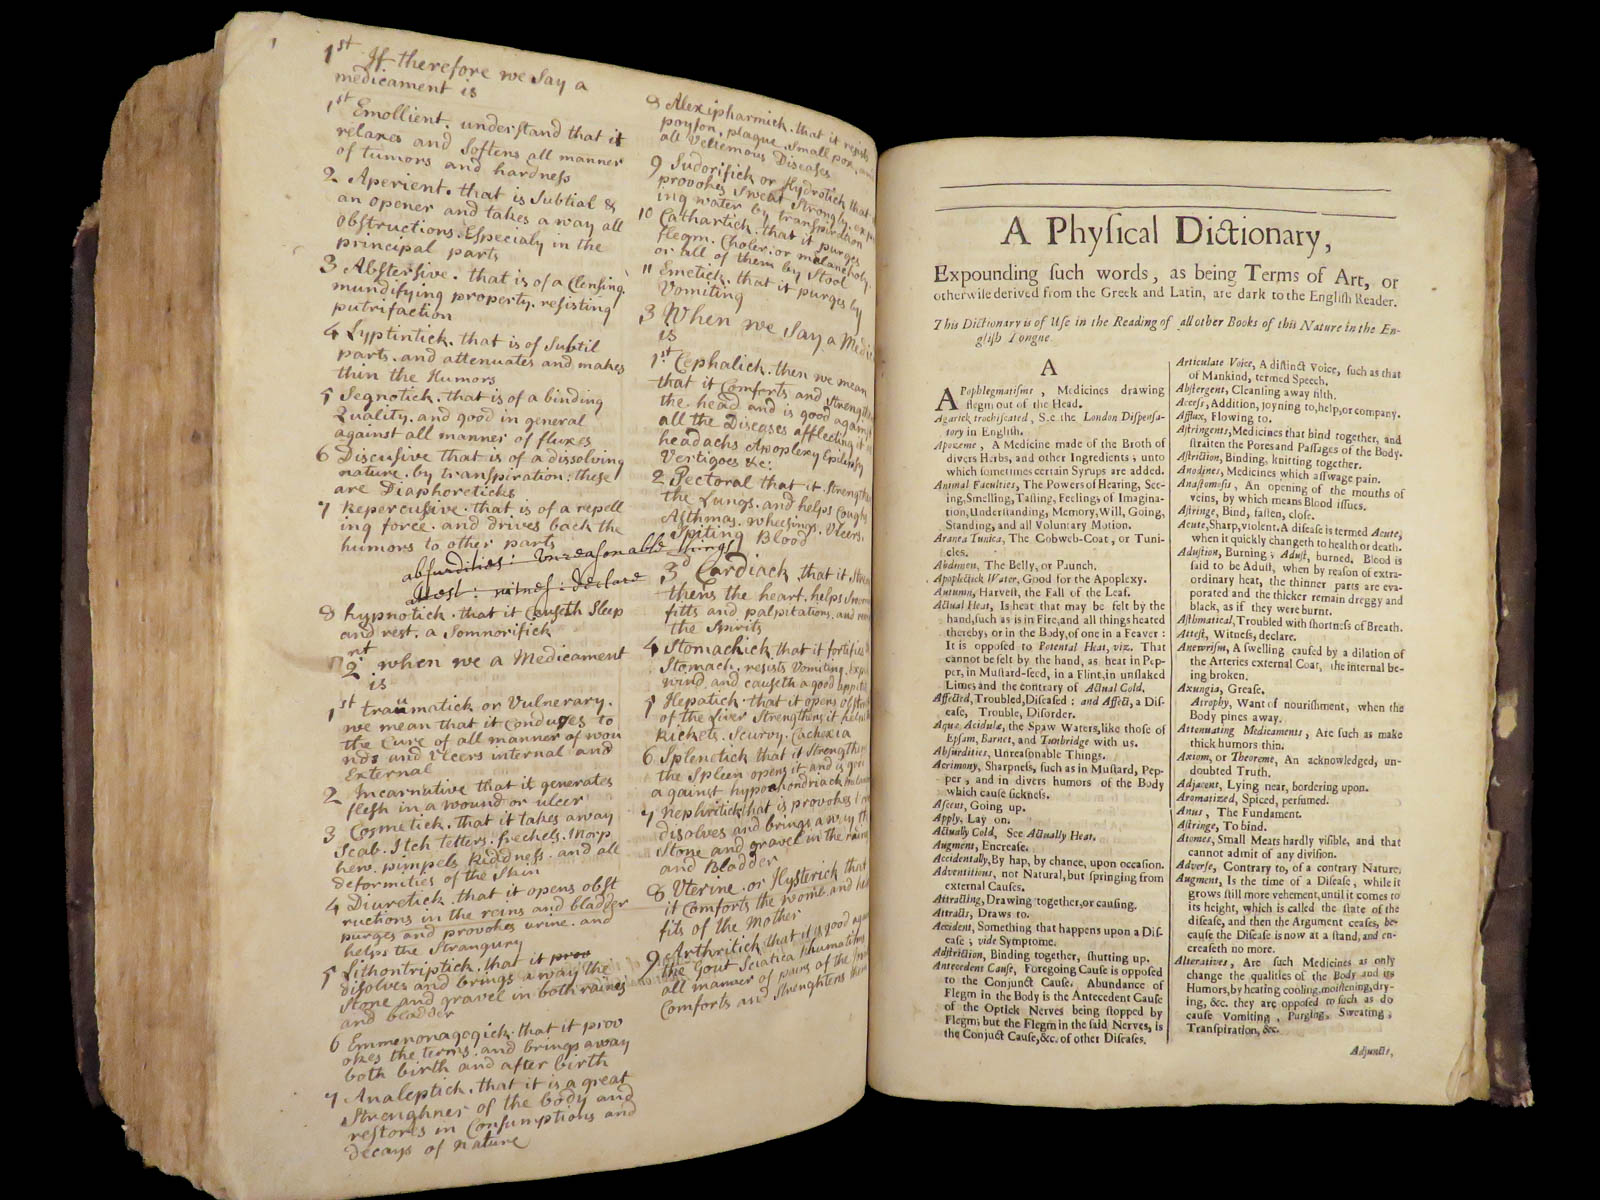 1st If therefore we say a
medicament is
1st Emollient. understand that it
relaxes and softens all manner
of tumors and hardness
2 Aperient. that is Subtial &
an opener and takes away all
obstructions. Especialy in the
principal parts
3 Abstersive. that is of a Clensing
mundifying property. resisting
putrifaction
4 Lyptintick. that is of Subtil
parts. and attenuates and makes
thin the Humors
5 Segnotick. that is of a binding
Quality. and good in general
against all manner of fluxes
6 Discusive that is of a dissolving
nature. by transpiration: these
are Diaphoreticks
7 Repercusive. that is of a repell
ing force. and drives back the
humors to other parts
absurdities: Unreasonable things
attest: witness: declare
8 hypnotick. that it Causeth Sleep
and rest. a Somnorifick
2 when we a Medicament
is
1st traümatick or Vulnerary.
we mean that it Conduces to
the Cure of all manner of wou
nds and Ulcers internal and
External
2 Incarnative that it generates
flesh in a wound or ulcer
3 Cosmetick. that it takes away
Scab. Itch tetters. freckels. Morp
hew. pimpels Reddness. and all
deformities of the Skin
4 Diuretick. that it opens obst
ructions in the reins and bladder
purges and provokes urine. and
helps the Strangury
5 Lithontriptick. that it prov
disolves and brings away the
Stone and gravel in both raines
and bladder
6 Emmenonagogick. that it prov
okes the terms. and brings away
both birth and after birth
7 Analeptick. that it is a great
Strenghner of the body and
restores in Consumptions and
decays of Nature
8 Alexipharmick. that it resists
poyson. plague. Small pox. and
all Vellemous Diseases
9 Sudorifick or Hydrotick that
provokes Sweat Strongly. exp
ing water by transpiration
10 Cathartick. that it purges
flegm. Choler. or melancholy.
or all of them by Stool
11 Emetick. that it purges by
Vomiting
3 When we Say a Medi
is
1st Cephalick. then we mean
that it Comforts and Strengthe
the head and is good against
all the Diseases afflecting it
headachs Apoplexy Epilepsy
Vertigoes &c:
2 Pectoral that it Strengthe
the Lungs. and helps Coughs
Asthmas. wheesings. Ulcers.
Spitting Blood
3d Cardiack that it Stren
thens the heart. helps
fitts and palpitations. and
the Spirits
4 Stomachick that it fortifies
Stomach. resists Vomiting. Expe
wind and causeth a good appetit
5 Hepatick. that it opens obstr
of the Liver Strengthens it helps
Rickets. Scurvy. Cachexia
6 Splenetick that it Strengthen
the Spleen opens it and is good
a against hypochondriack melan
7 Nephritick that is provokes
disolves and brings away th
Stone and gravel in the reins
and Bladder
8 Uterine. or Hysterick that
it Comforts the womb. and hel
fits of the Mother
9 Arthritick that it is good agai
the Gout Sciatica rhumatism
all manner of pains of the Join
Comforts and Strenghtens them
A Phyſical Dictionary,
Expounding ſuch words, as being Terms of Art, or
otherwiſe derived from the Greek and Latin, are dark to the Engliſh Reader.
This Dictionary is of Uſe in the Reading of all other Books of this Nature in the En-
gliſh Tongue.
A
APophlegmatiſms, Medicines drawing
flegm out of the Head.
Agarick trochiſcated, See the London Diſpenſa-
tory in Engliſh.
Apozeme, A Medicine made of the Broth of
divers Herbs, and other Ingredients; unto
which ſometimes certain Syrups are added.
Animal Faculties, The Powers of Hearing, See-
ing, Smelling, Taſting, Feeling, of Imagina-
tion, Underſtanding, Memory, Will, Going,
Standing, and all Voluntary Motion.
Aranea Tunica, The Cobweb-Coat, or Tuni-
cles.
Abdomen, The Belly, or Paunch.
Apoplectick Water, Good for the Apoplexy.
Autumn, Harveſt, the Fall of the Leaf.
Actual Heat, Is heat that may be felt by the
hand, ſuch as is in Fire, and all things heated
thereby, or in the Body, of one in a Feaver:
It is oppoſed to Potental Heat, viz. That
cannot be felt by the hand, as heat in Pep-
per, in Muſtard-ſeed, in a Flint, in unſlaked
Lime; and the contrary of Actual Cold.
Affected, Troubled, Diſeaſed: and Affect, a Diſ-
eaſe, Trouble, Diſorder.
Aquæ Acidulæ, the Spaw Waters, like thoſe of
Epſam, Barnet, and Tunbridge with us.
Abſurdities, Unreaſonable Things.
Acrimony, Sharpneſs, ſuch as in Muſtard, Pep-
per, and in divers humors of the Body
which cauſe ſickneſs.
Aſcent, Going up.
Apply, Lay on.
Actually Cold, See Actually Heat.
Augment, Encreaſe.
Accidentally, By hap, by chance, upon occaſion.
Adventitious, not Natural, but ſpringing from
external Cauſes.
Attracting, Drawing together, or cauſing.
Attracts, Draws to.
Accident, Something that happens upon a Diſ-
eaſe; vide Symptome.
Adſtriction, Binding together, ſhutting up.
Antecedent Cauſe, Foregoing Cauſe is oppoſed
to the Conjunct Cauſe. Abundance of
Flegm in the Body is the Antecedent Cauſe
of the Optick Nerves being ſtopped by
Flegm; but the Flegm in the ſaid Nerves, is
the Conjunct Cauſe, &c. of other Diſeaſes.
Articulate Voice, A diſtinct Voice, ſuch as that
of Mankind, termed Speech.
Abſtergent, Cleanſing away filth.
Acceſs, Addition, joyning to, help, or company.
Afflux, Flowing to.
Aſtringents, Medicines that bind together, and
ſtraiten the Pores and Paſſages of the Body.
Aſtriction, Binding, knitting together.
Anodines, Medicines which aſſwage pain.
Anaſtomoſis, An opening of the mouths of
veins, by which means Blood iſſues.
Aſtringe, Bind, faſten, cloſe.
Acute, Sharp, violent. A diſeaſe is termed Acute,
when it quickly changeth to health or death.
Aduſtion, Burning; Aduſt, burned. Blood is
ſaid to be Aduſt, when by reaſon of extra-
ordinary heat, the thinner parts are eva-
porated and the thicker remain dreggy and
black, as if they were burnt.
Aſthmatical, Troubled with ſhortneſs of Breath.
Atteſt, Witneſs, declare.
Aneuriſm, A ſwelling cauſed by a dilation of
the Arteries external Coat, the internal be-
ing broken.
Axungia, Greaſe.
Atrophy, Want of nouriſhment, when the
Body pines away.
Attenuating Medicaments, Are ſuch as make
thick humors thin.
Axiom, or Theoreme, An acknowledged, un-
doubted Truth.
Adjacent, Lying near, bordering upon.
Aromatized, Spiced, perfumed.
Anus, The Fundament.
Aſtringe, To bind.
Atomes, Small Meats hardly viſible, and that
cannot admit of any diviſion.
Adverſe, Contrary to, of a contrary Nature.
Augment, Is the time of a Diſeaſe, while it
grows ſtill more vehement, until it comes to
its height, which is called the ſtate of the
diſeaſe, and then the Argument ceaſes, be-
cauſe the Diſeaſe is now at a ſtand, and en-
creaſeth no more.
Alteratives, Are ſuch Medicines as only
change the qualities of the Body and its
Humors, by heating cooling, moiſtening, dry-
ing, &c. they are oppoſed to ſuch as do
cauſe Vomiting, Purging, Sweating,
Tranſpiration, &c.
Adjuncts,